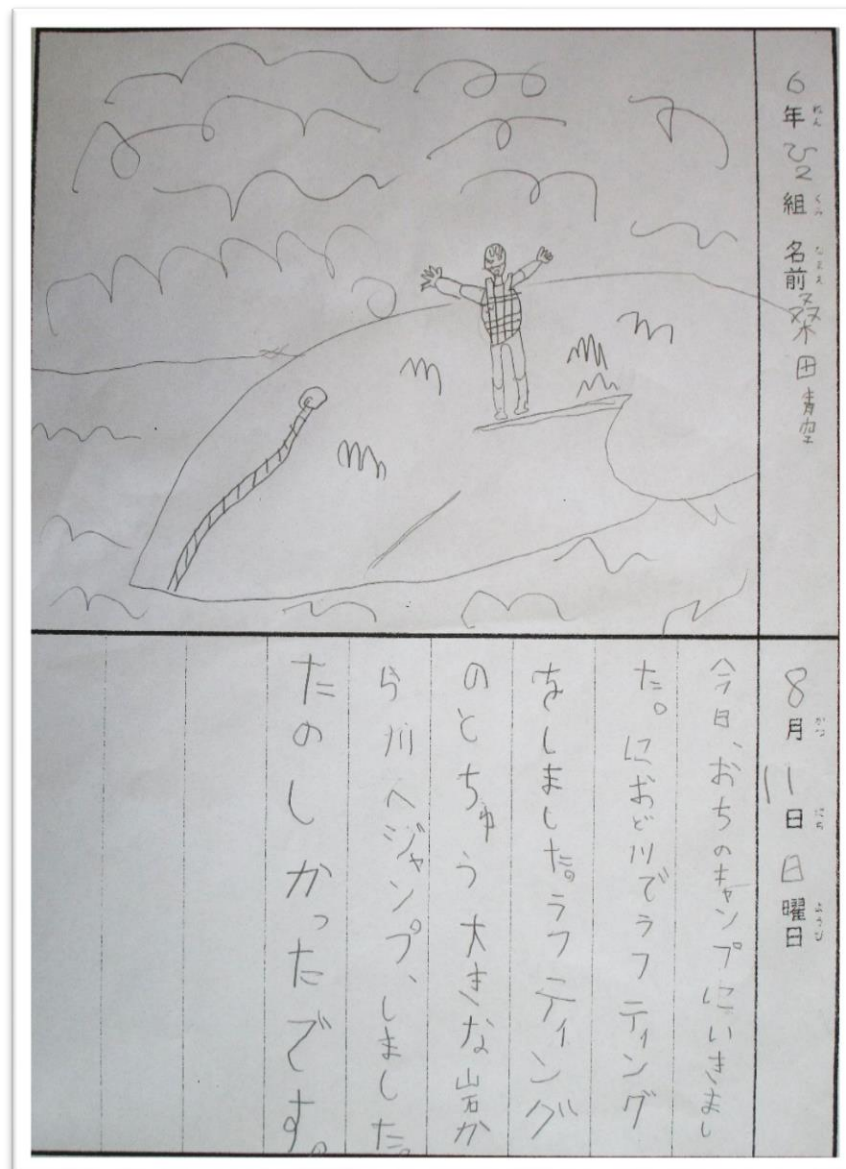 6年ひ2組 名前桑田青空
8月11日日曜日
今日、おちのキャンプにいきまし
た。におど川でラフティング
をしました。ラフティング
のとちゅう大きな岩か
ら川へジャンプ、しました。
たのしかったです。